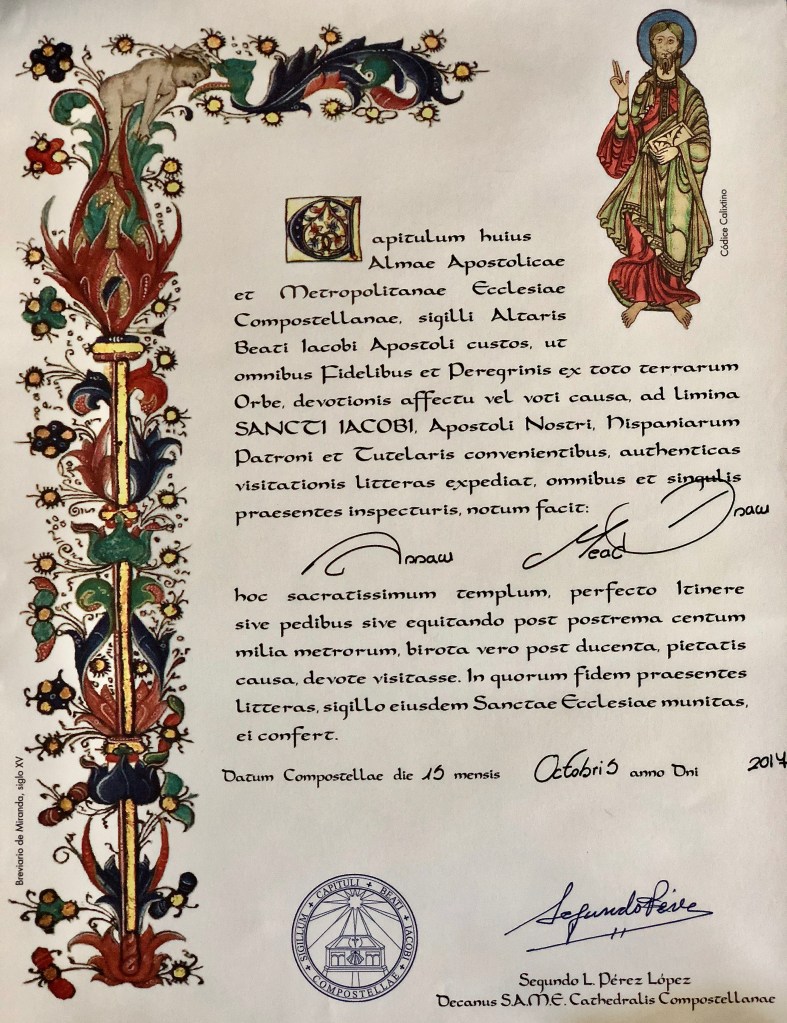 Códice Calixtino
Capitulum huius
Almae Apostolicae
et Metropolitanae Ecclesiae
Compostellanae, sigilli Altaris
Beati Iacobi Apostoli custos, ut
omnibus Fidelibus et Peregrinis ex toto terrarum
Orbe, devotionis affectu vel voti causa, ad limina
SANCTI IACOBI, Apostoli Nostri, Hispaniarum
Patroni et Tutelaris convenientibus, authenticas
visitationis litteras expediat, omnibus et singulis
praesentes inspecturis, notum facit:
Mead
hoc sacratissimum templum, perfecto Itinere
sive pedibus sive equitando post postrema centum
milia metrorum, birota vero post ducenta, pietatis
causa, devote visitasse. In quorum fidem praesentes
litteras, sigillo eiusdem Sanctae Ecclesiae munitas,
ei confert.
Datum Compostellae die 15 mensis Octobris anno Dni
Breviario de Miranda, siglo XV
SIGILLUM + CAPITULI + BEATI + IACOBI + COMPOSTELLAE +
Segundo L. Pérez López
Decanus S.A.M.E. Cathedralis Compostellanae